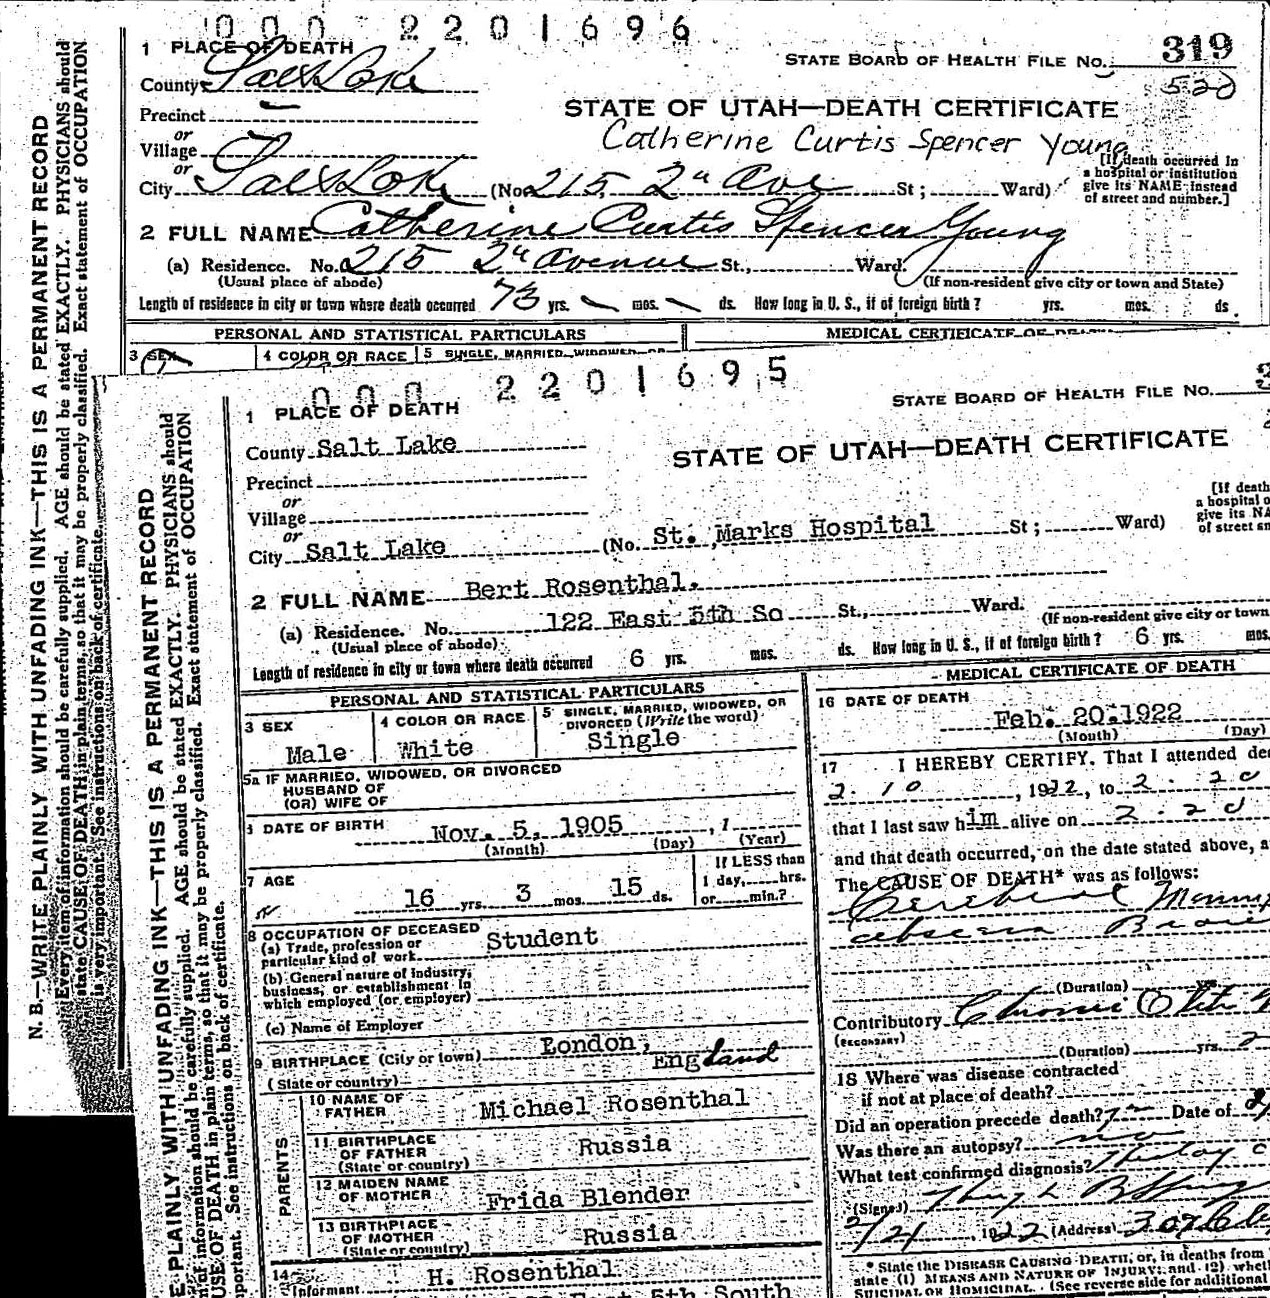 000 2201696
1 PLACE OF DEATH
STATE BOARD OF HEALTH FILE No. 319
520
County Salt Lake
STATE OF UTAH—DEATH CERTIFICATE
Precinct
Catherine Curtis Spencer Young
or
Village
or
City Salt Lake (No. 215 2nd Ave St ; Ward)
[If death occurred in
a hospital or institution
give its NAME instead
of street and number.]
2 FULL NAME Catherine Curtis Spencer Young
(a) Residence. No. 215 2nd Avenue St., Ward.
(Usual place of abode) (If non-resident give city or town and State)
Length of residence in city or town where death occurred 73 yrs. mos. ds. How long in U. S., if of foreign birth ? yrs. mos. ds.
PERSONAL AND STATISTICAL PARTICULARS
MEDICAL CERTIFICATE OF
3 SEX 4 COLOR OR RACE 5 SINGLE, MARRIED, WIDOWED, OR
N. B.—WRITE PLAINLY WITH UNFADING INK—THIS IS A PERMANENT RECORD
Every item of information should be carefully supplied. AGE should be stated EXACTLY. PHYSICIANS should
state CAUSE OF DEATH in plain terms, so that it may be properly classified. Exact statement of OCCUPATION
is very important. See instructions on back of certificate.
000 2201695
1 PLACE OF DEATH
STATE BOARD OF HEALTH FILE No. 3
County Salt Lake
STATE OF UTAH—DEATH CERTIFICATE
Precinct
or
Village
or
City Salt Lake (No. St. Marks Hospital St ; Ward)
[If death
a hospital o
give its NA
of street an
2 FULL NAME Bert Rosenthal.
(a) Residence. No. 122 East 5th So St., Ward.
(Usual place of abode) (If non-resident give city or town
Length of residence in city or town where death occurred 6 yrs. mos. ds. How long in U. S., if of foreign birth ? 6 yrs. mos.
PERSONAL AND STATISTICAL PARTICULARS
3 SEX
Male
4 COLOR OR RACE
White
5 SINGLE, MARRIED, WIDOWED, OR
DIVORCED (Write the word)
Single
5a IF MARRIED, WIDOWED, OR DIVORCED
HUSBAND OF
(OR) WIFE OF
DATE OF BIRTH Nov. 5, 1905 , 1
(Month) (Day) (Year)
7 AGE
16 yrs. 3 mos. 15 ds.
If LESS than
1 day, hrs.
or min.?
8 OCCUPATION OF DECEASED
(a) Trade, profession or
particular kind of work Student
(b) General nature of industry,
business, or establishment in
which employed (or employer)
(c) Name of Employer
9 BIRTHPLACE (City or town) London,
England
(State or country)
PARENTS
10 NAME OF
FATHER Michael Rosenthal
11 BIRTHPLACE
OF FATHER
(State or country) Russia
12 MAIDEN NAME
OF MOTHER Frida Blender
13 BIRTHPLACE
OF MOTHER
(State or country) Russia
14
Informant H. Rosenthal
East 5th South
MEDICAL CERTIFICATE OF DEATH
16 DATE OF DEATH
Feb. 20.1922
(Month) (Day)
17 I HEREBY CERTIFY, That I attended de
2. 10 , 1922, to 2 . 20
that I last saw him alive on 2 . 20
and that death occurred, on the date stated above, a
The CAUSE OF DEATH* was as follows:
Cerebral
abscess
(Duration)
Contributory Chronic Otitis
(SECONDARY)
(Duration) yrs. 2
18 Where was disease contracted
if not at place of death?
Did an operation precede death? Date of
Was there an autopsy? no
What test confirmed diagnosis?
(Signed)
2/21 1922 (Address)
* State the DISEASE CAUSING DEATH, or, in deaths from
state (1) MEANS AND NATURE OF INJURY; and (2) wheth
SUICIDAL OR HOMICIDAL. (See reverse side for additional
PLAINLY WITH UNFADING INK—THIS IS A PERMANENT RECORD
of information should be carefully supplied. AGE should be stated EXACTLY. PHYSICIANS should
USE OF DEATH in plain terms, so that it may be properly classified. Exact statement of OCCUPATION
portant. See instructions on back of certificate.